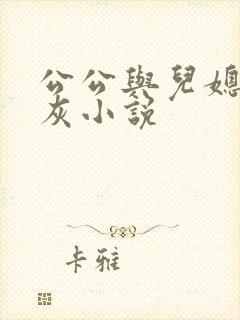 公公與兒媳
灰小說
卡雅